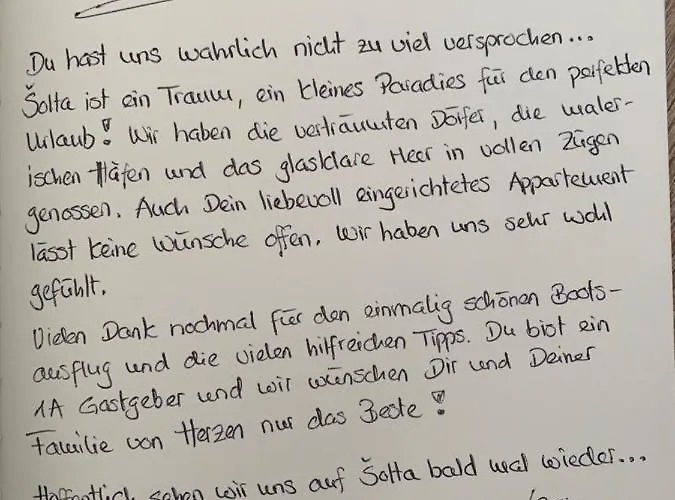 Du hast uns wahrlich nicht zu viel versprochen...
Šolta ist ein Traum, ein kleines Paradies für den perfekten
Urlaub! Wir haben die verträumten Dörfer, die maler-
ischen Häfen und das glasklare Meer in vollen Zügen
genossen. Auch Dein liebevoll eingerichtetes Appartement
lässt keine Wünsche offen. Wir haben uns sehr wohl
gefühlt.
Vielen Dank nochmal für den einmalig schönen Boots-
ausflug und die vielen hilfreichen Tipps. Du bist ein
1A Gastgeber und wir wünschen Dir und Deiner
Familie von Herzen nur das Beste!
Hoffentlich sehen wir uns auf Šolta bald mal wieder...